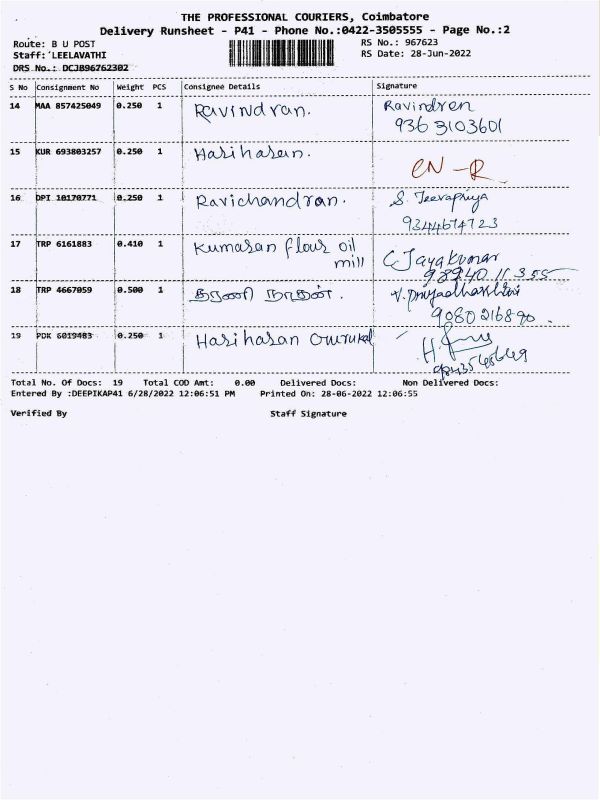 THE PROFESSIONAL COURIERS, Coimbatore
Delivery Runsheet - P41 - Phone No.:0422-3505555 - Page No.:2
Route: B U POST
RS No.: 967623
Staff: LEELAVATHI
RS Date: 28-Jun-2022
DRS No.: DCJB96762302
S No Consignment No Weight PCS Consignee Details Signature
14 MAA 857425049 0.250 1 Ravindran. Ravindren
936 3103601
15 KUR 693803257 0.250 1 Hariharan.
16 DPI 10170771 0.250 1 Ravichandran. S. Jeevapriya
9344674723
17 TRP 6161883 0.410 1 Kumaran flour oil
mill C Jayakumar
98940 11 355
18 TRP 4667059 0.500 1 தரணி நாதன்.
9080 216890.
19 PDK 6019483 0.250 1 Hariharan Gurukal
Total No. Of Docs: 19 Total COD Amt: 0.00 Delivered Docs: Non Delivered Docs:
Entered By :DEEPIKAP41 6/28/2022 12:06:51 PM Printed On: 28-06-2022 12:06:55
Verified By Staff Signature